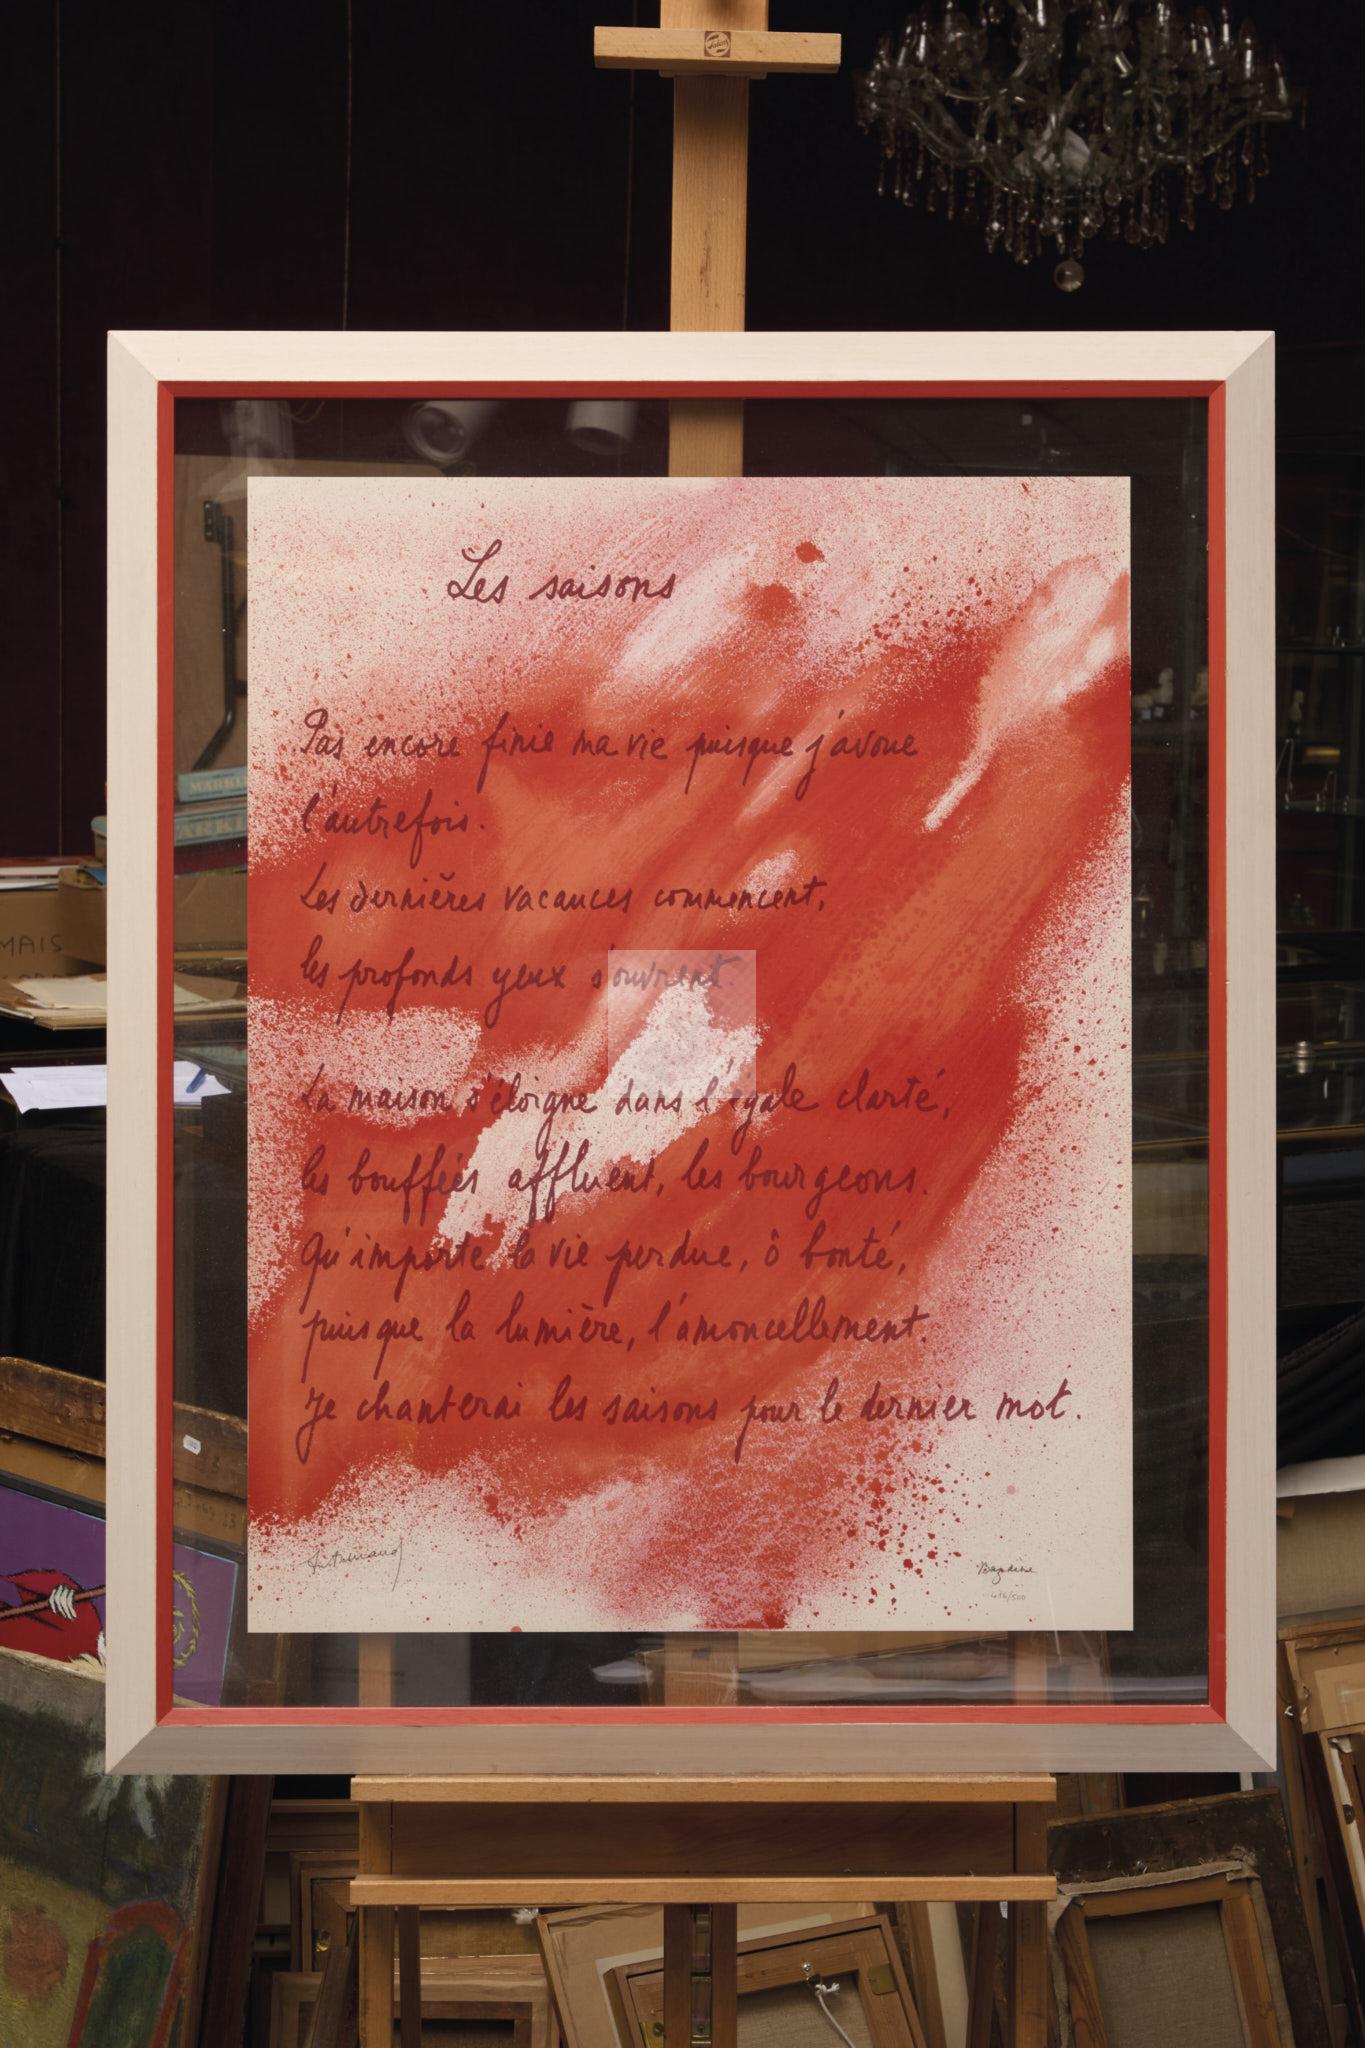 Les saisons
Pas encore finie ma vie puisque j'avoue
l'autrefois.
Les dernières vacances commencent,
les profonds yeux s'ouvrent.
La maison s'éloigne dans l'égale clarté,
les bouffées affluent, les bourgeons.
Qu'importe la vie perdue, ô bonté,
puisque la lumière, l'amoncellement.
Je chanterai les saisons pour le dernier mot.
MAIS